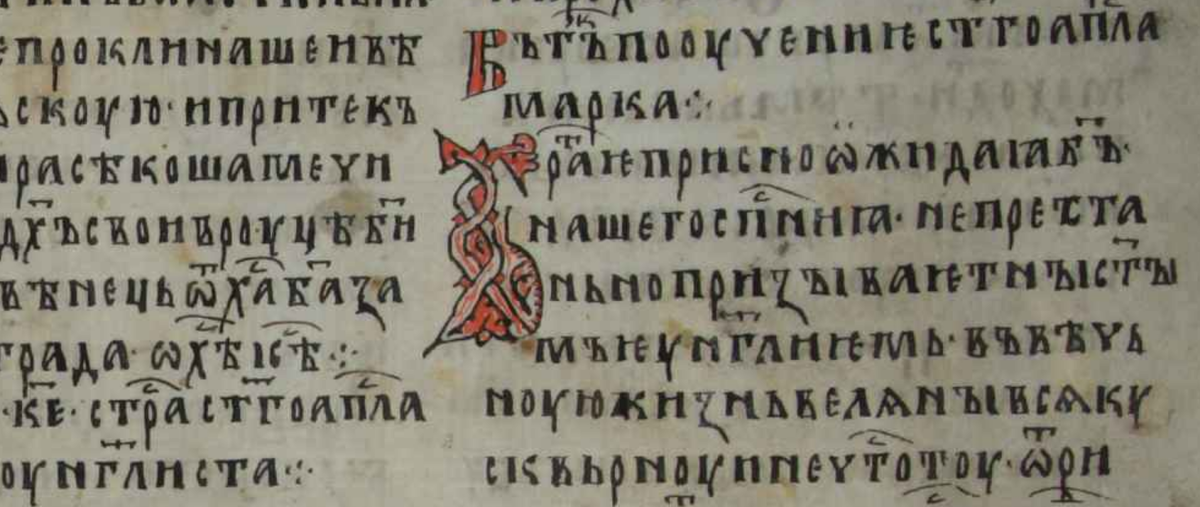 епроклинашенвѣ
ьскоую· ипритекъ
ирасѣкошамечи
дх҃ъсвоивъроуцѣб҃и
вѣнець ѿх҃а б҃аза
града· ѡх҃ѣ іс҃ѣ ⁘
·к҃е· стр҃а ст҃гоап҃ла
оуиг҃листа ⁘
Въ т҃ъ поо учение ст҃гоап҃ла
марка ⁘
Тр҃аѥприсноѡжидаꙗб҃ъ·
нашегосп҃ниꙗ· непрѣста
ньнопризываѥтныст҃ы
мьѥуиг҃лиѥмь· въвѣчь
ноуюжизньвелѧнывсѧку
сквьрноуинеч҃тотоу· ѿри